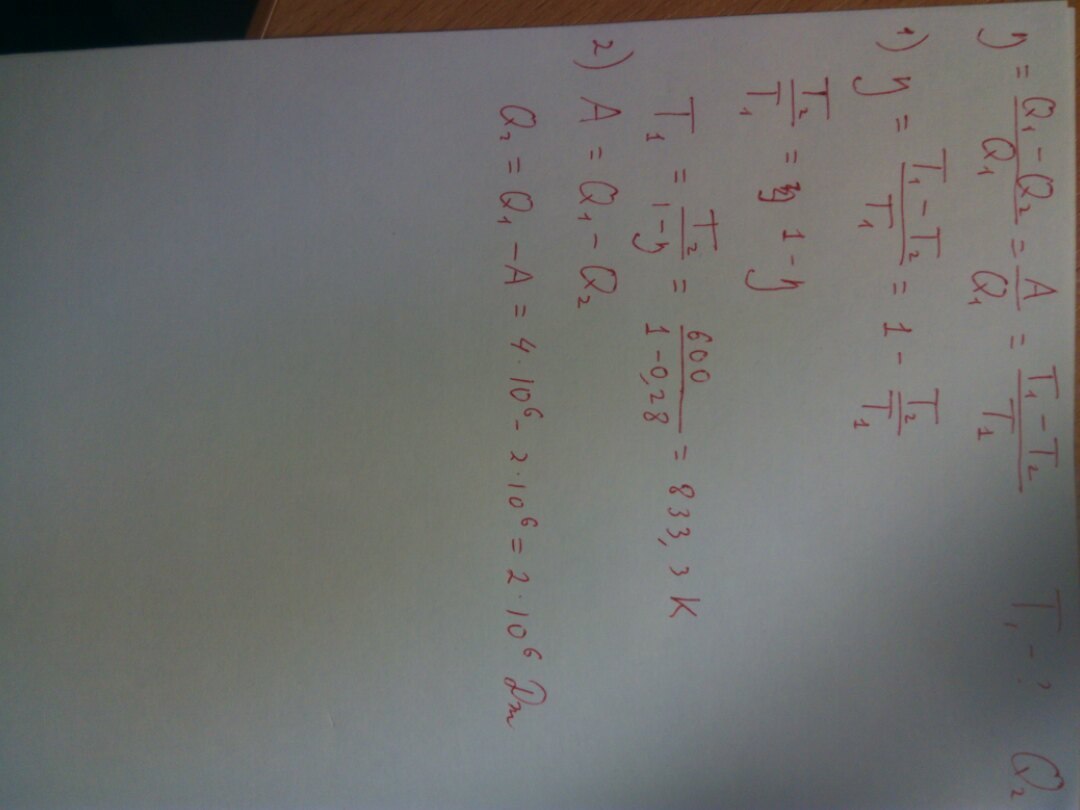 η = (Q₁ - Q₂)/Q₁ = A/Q₁ = (T₁ - T₂)/T₁ T₁ - ? Q₂
1) η = (T₁ - T₂)/T₁ = 1 - T₂/T₁
T₂/T₁ = 1 - η
T₁ = T₂/(1 - η) = 600/(1 - 0,28) = 833,3 K
2) A = Q₁ - Q₂
Q₂ = Q₁ - A = 4·10⁶ - 2·10⁶ = 2·10⁶ Дж